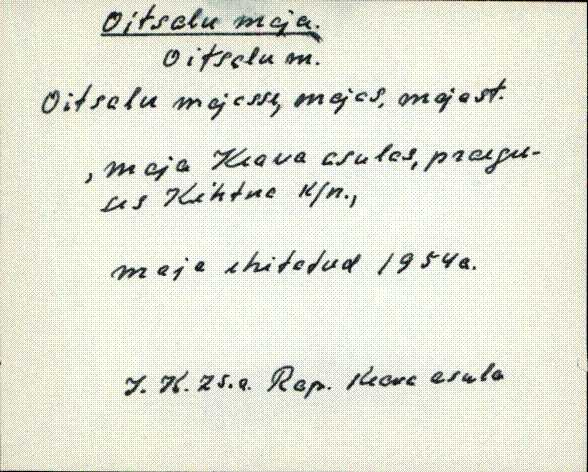 Oitsalu maja.
Oitsalu m.
Oitsalu majasse, majas, majast.
, maja Keava asulas, praegu-
ses Kihtna k/n.,
maja ehitatud 1954a.
I. K. 25.a. Rap. Keava asula